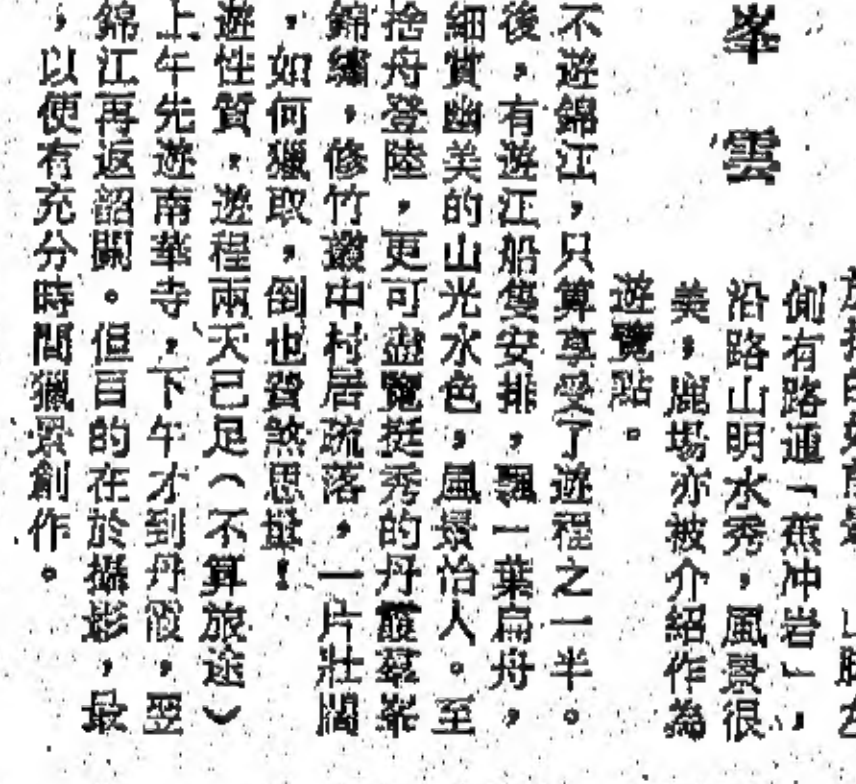 峯雲
側有路通「蕉冲岩」，
沿路山明水秀，風景很
美，鹿場亦被介紹作為
遊覽點。
不遊錦江，只算享受了遊程之一半。
後，有遊江船隻安排，飄一葉扁舟，
細賞幽美的山光水色，風景怡人。至
捨舟登陸，更可盡覽挺秀的丹霞羣峯
錦繡，修竹叢中村居疏落，一片壯闊
，如何獵取，倒也費煞思量！
遊性質，遊程兩天已足（不算旅途）
上午先遊南華寺，下午才到丹霞，翌
錦江再返韶關。但目的在於攝影，最
，以便有充分時間獵景創作。